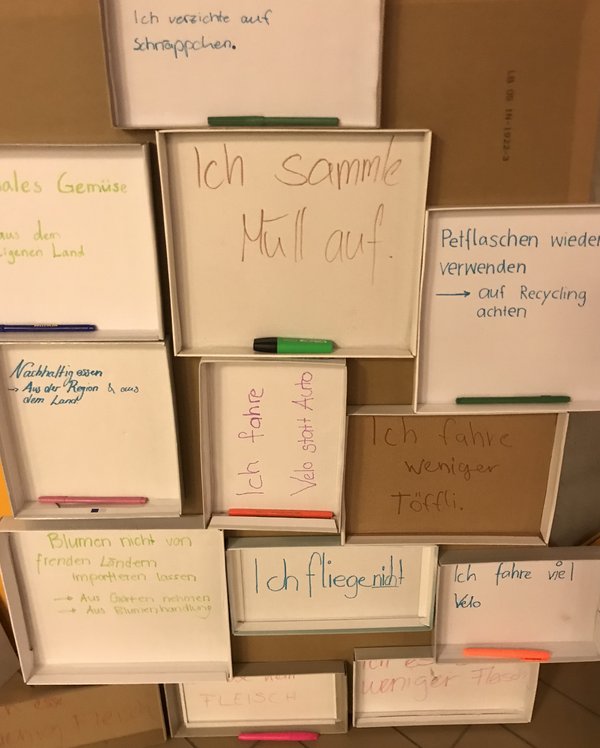 Ich verzichte auf
schnäppchen.
LB 09 IN-1922-3
Ich sammle
Müll auf.
ales Gemüse
aus dem
eigenen Land
Petflaschen wieder
verwenden
→ auf Recycling
achten
Nachhaltig essen
→ Aus der Region & aus
dem Land
Ich fahre
Velo statt Auto
Ich fahre
weniger
Töffli.
Blumen nicht von
frenden Ländern
importieren lassen
→ Aus Garten nehmen
→ Aus Blumenhandlung
Ich fliege nicht
Ich fahre viel
Velo
FLEISCH
Ich es
weniger Fleisch